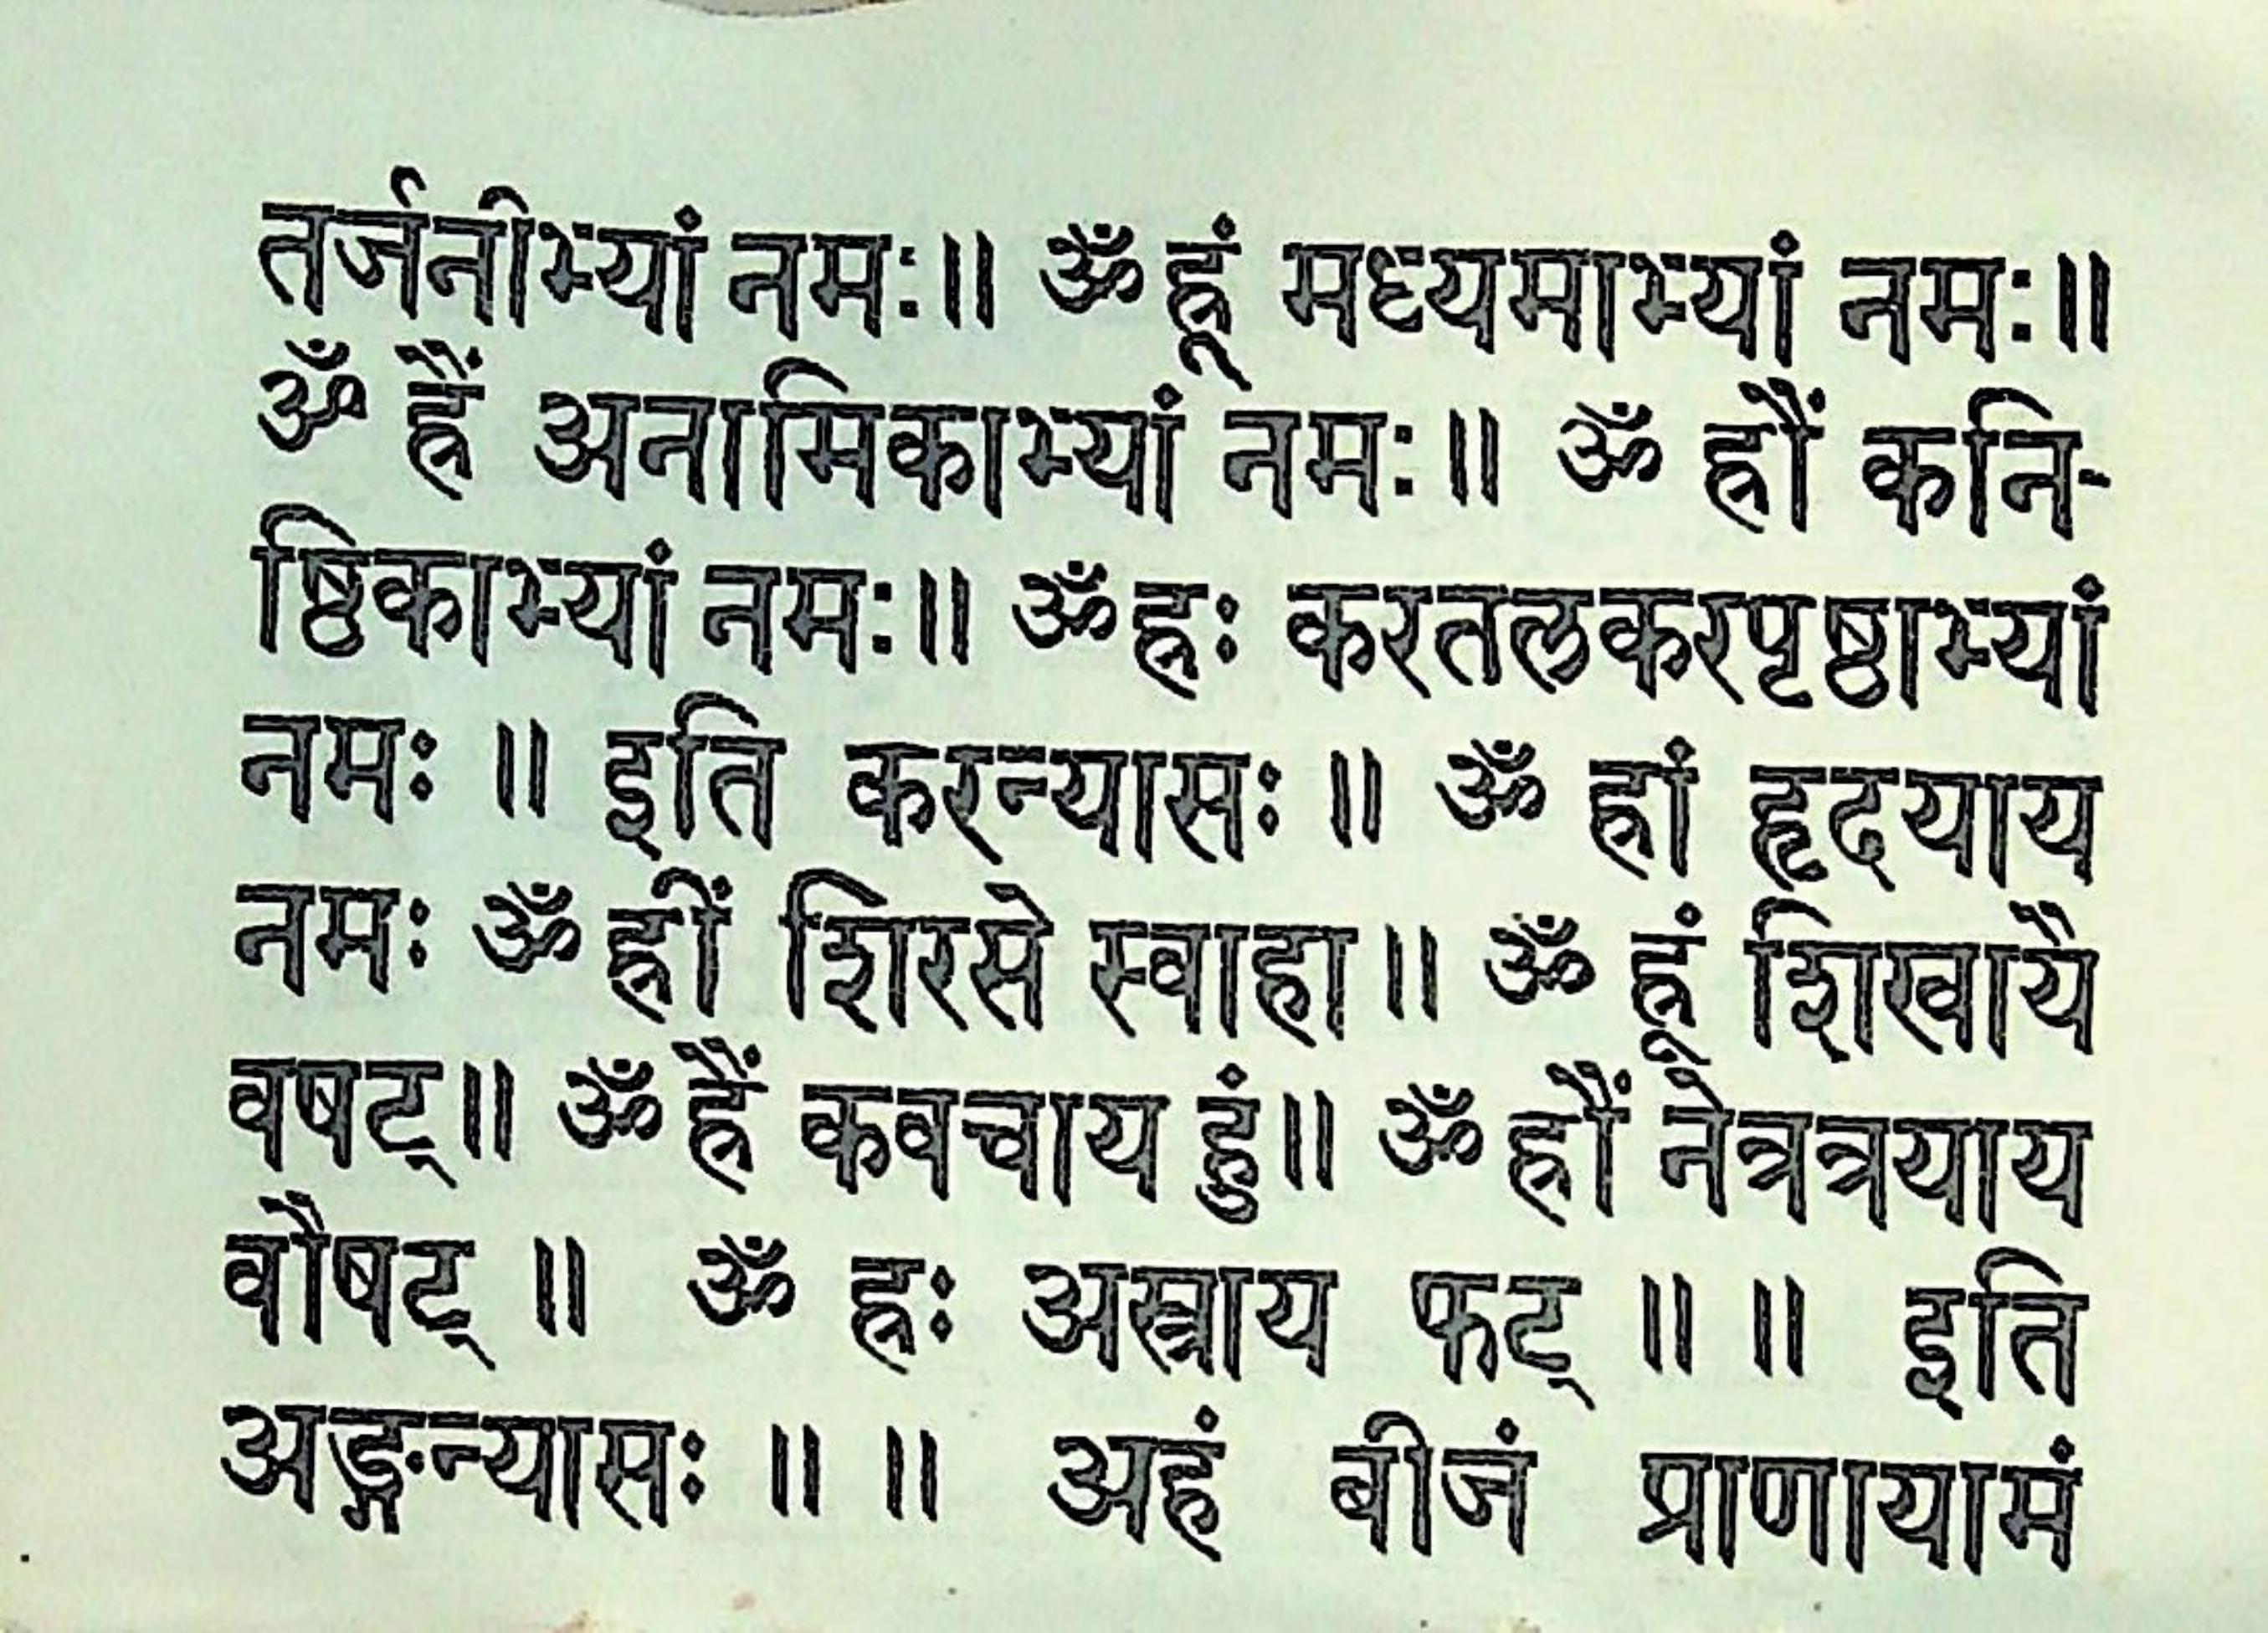 तर्जनीभ्यां नमः॥ ॐ ह्रूं मध्यमाभ्यां नमः॥
ॐ ह्रैं अनामिकाभ्यां नमः॥ ॐ ह्रौं कनि-
ष्ठिकाभ्यां नमः॥ ॐ ह्रः करतलकरपृष्ठाभ्यां
नमः ॥ इति करन्यासः ॥ ॐ ह्रां हृदयाय
नमः ॐ ह्रीं शिरसे स्वाहा॥ ॐ ह्रूं शिखायै
वषट्॥ ॐ ह्रैं कवचाय हुं॥ ॐ ह्रौं नेत्रत्रयाय
वौषट् ॥ ॐ ह्रः अस्त्राय फट् ॥ ॥ इति
अङ्गन्यासः ॥ ॥ अहं बीजं प्राणायामं